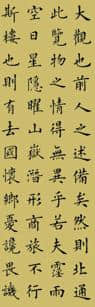 大觀也前人之述備矣然則北通
此覽物之情得無異乎若夫霪雨
空日星隱曜山嶽潛形商旅不行
斯樓也則有去國懷鄉憂讒畏譏